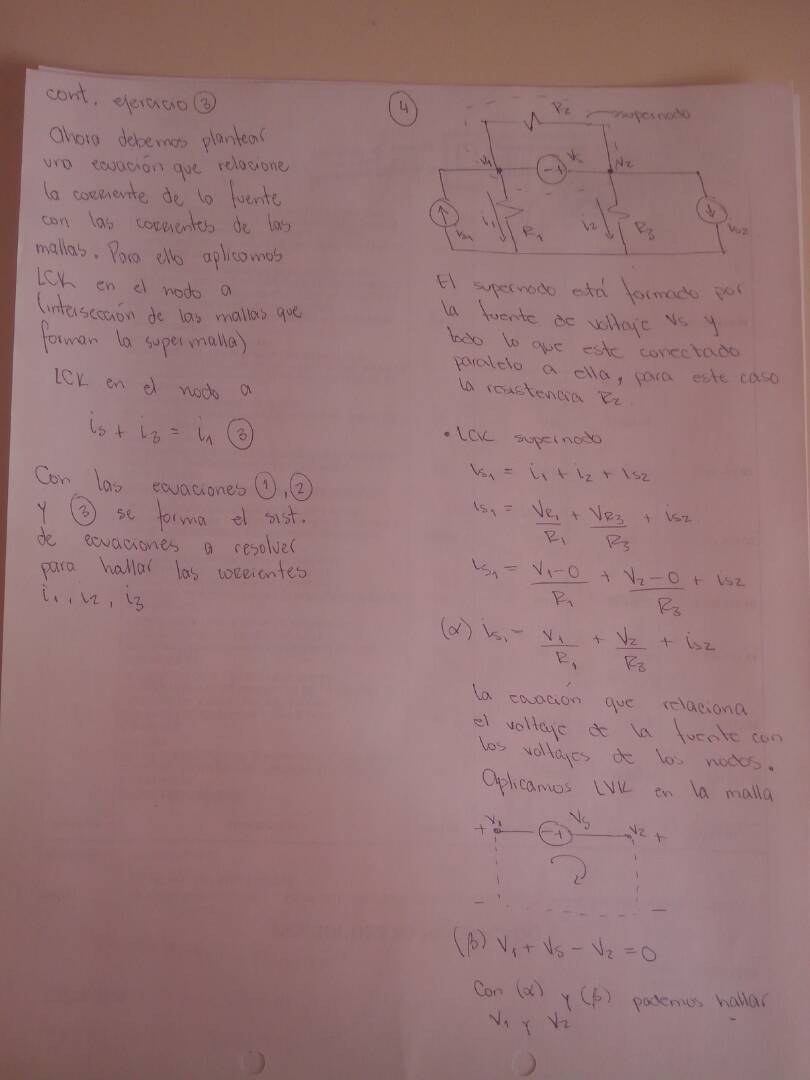 cont. ejercicio ③
Ahora debemos plantear
una ecuación que relacione
la corriente de la fuente
con las corrientes de las
mallas. Para ello aplicamos
LCK en el nodo a
(intersección de las mallas que
forman la supermalla)
LCK en el nodo a
is + i3 = i1 ③
Con las ecuaciones ①, ②
y ③ se forma el sist.
de ecuaciones a resolver
para hallar las corrientes
i1, i2, i3
④
R2
supernodo
V1
- +
Vs
V2
is1
i1
R1
i2
R3
is2
El supernodo está formado por
la fuente de voltaje Vs y
todo lo que este conectado
paralelo a ella, para este caso
la resistencia R2.
• LCK supernodo
is1 = i1 + i2 + is2
is1 = VR1/R1 + VR3/R3 + is2
is1 = V1-0/R1 + V2-0/R3 + is2
(α) is1 = V1/R1 + V2/R3 + is2
La ecuación que relaciona
el voltaje de la fuente con
los voltajes de los nodos.
Aplicamos LVK en la malla
+ V1 - + Vs V2 +
- -
(β) V1 + Vs - V2 = 0
Con (α) y (β) podemos hallar
V1 y V2